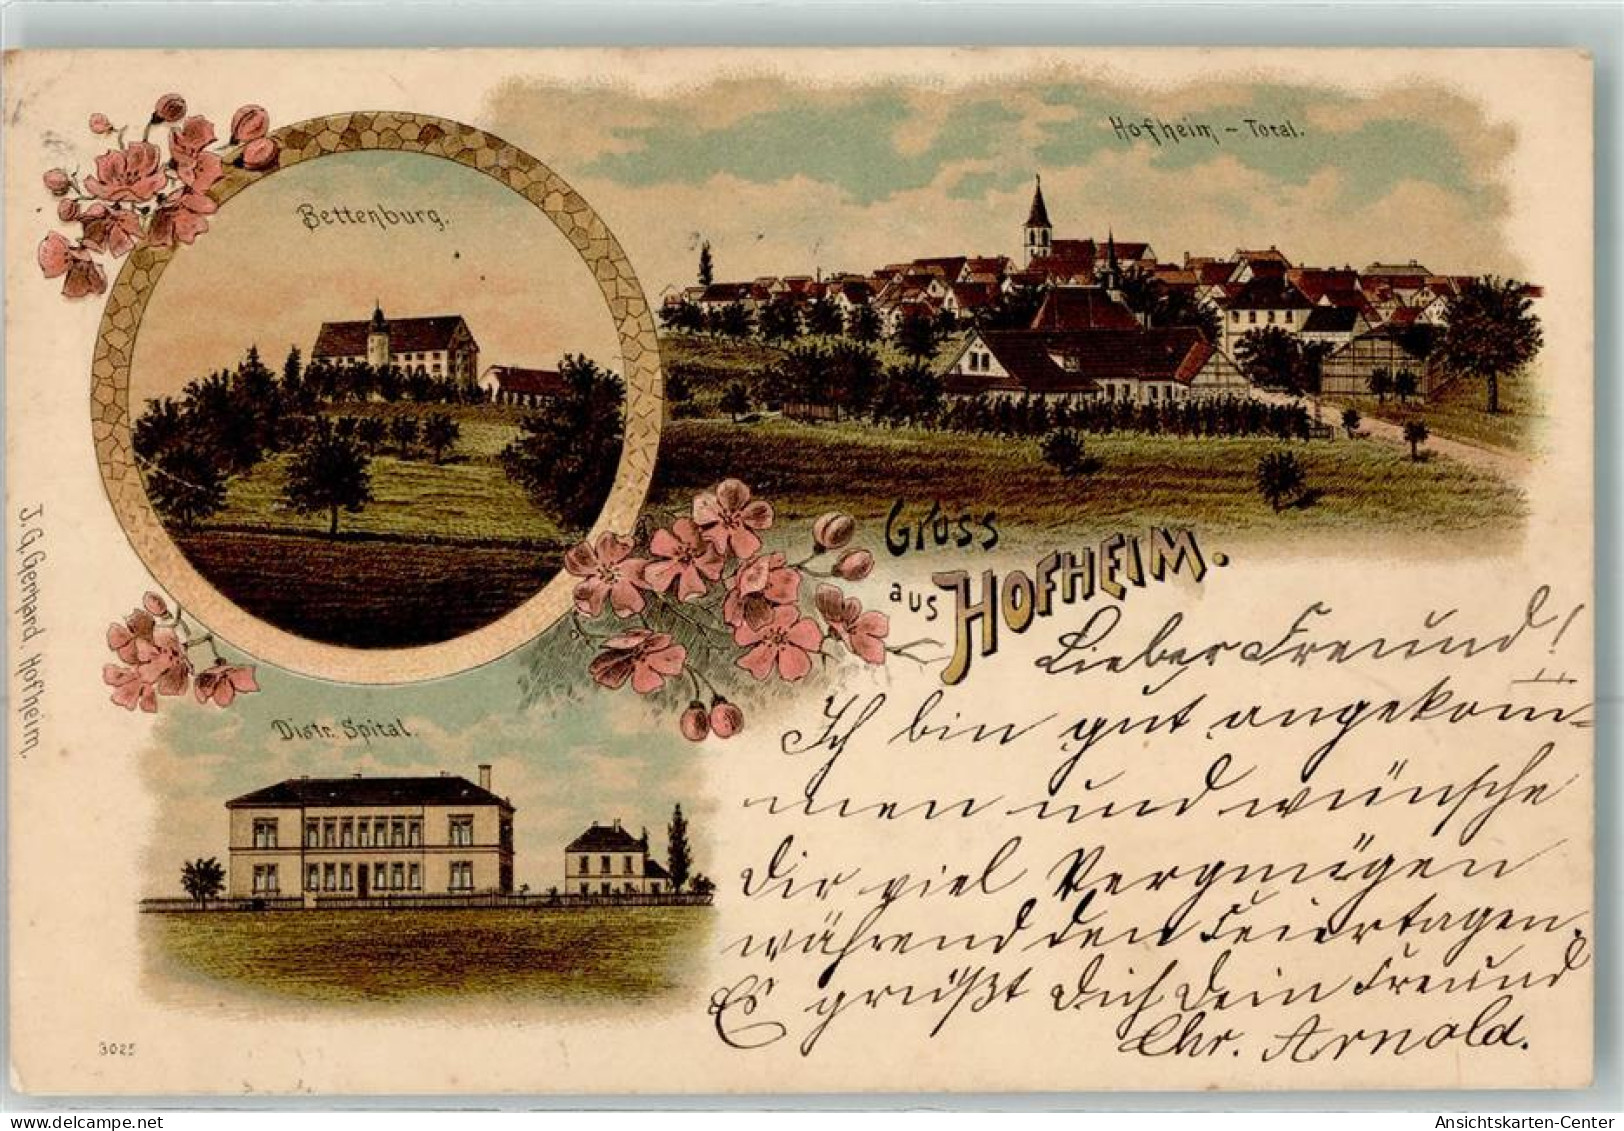 Hofheim - Total.
Bettenburg.
Gruss
aus HOFHEIM.
Distr. Spital.
J. G. Gerhard, Hofheim.
3025
Lieber Freund!
Ich bin gut angekom-
men und wünsche
Dir viel Vergnügen
während den Feiertagen.
Es grüßt Dich Dein Freund
Chr. Arnold.
Ansichtskarten-Center